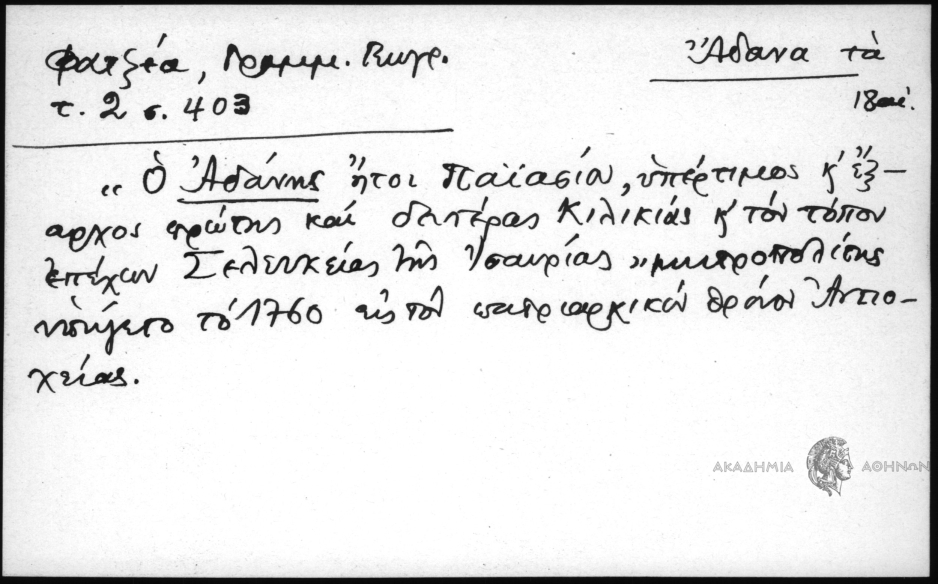 Φατζέα, Γραμμ. Γεωγρ.
τ. 2 σ. 403
Ἄδανα τὰ
18 αἰ.
„ Ὁ Ἀδάνης ἤτοι Παϊασίου, ὑπέρτιμος κ' ἔξ-
αρχος πρώτης καὶ δευτέρας Κιλικίας κ' τὸν τόπον
ἐπέχων Σελευκείας τῆς Ἰσαυρίας „ μητροπολίτης
ὑπήγετο τὸ 1760 εἰς τὸν πατριαρχικὸν θρόνον Ἀντιο-
χείας.
ΑΚΑΔΗΜΙΑ ΑΘΗΝΩΝ